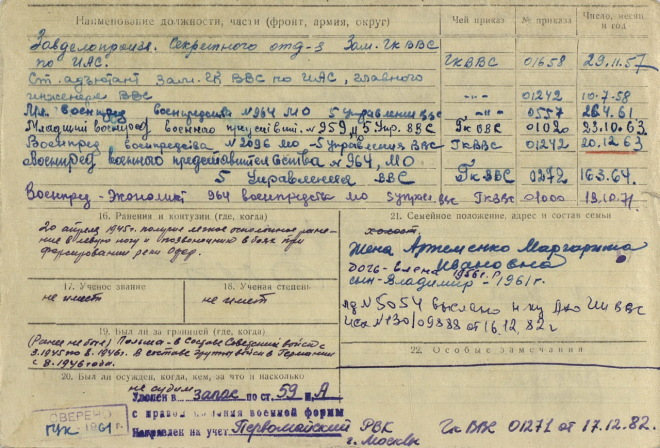 Наименование должности, части (фронт, армия, округ) Чей приказ № приказа Число, месяц и год
Завделопроизв. Секретного отд-я Зам. ГК ВВС
по ИАС. ГК ВВС 01658 29.11.57
Ст. адъютант Зам. ГК ВВС по ИАС, главного
инженера ВВС -"- 01242 10.7.58
военпред военпредства №964 МО 5 Управления ВВС -"- 0557 26.4.61
Младший военпред военного №959 5 Упр. ВВС Гк ВВС 0102 23.10.63
Военпред военпредства №2096 МО-5 Управления ВВС ГКВВС 01242 20.12.63
Военпред военного представительства №964, МО
5 Управления ВВС Гк ВВС 0272 16.3.64.
Военпред-Экономист 964 военпредства МО 5 Управ. ВВС ГкВВС 01000 19.10.71
16. Ранения и контузии (где, когда)
20 апреля 1945г. получил легкое осколочное ране-
ние в левую ногу и позвоночника в боях при
форсировании реки Одер.
17. Ученое звание
не имеет
18. Ученая степень
не имеет
19. Был ли за границей (где, когда)
(Ранее не был) Польша - в Составе Советских войск с
3.1945 по 8.1946г. В составе группы войск в Германии
с 8.1946 года.
20. Был ли осужден, когда, кем, за что и насколько
не судим
Уволен в запас по ст. 59 п. А
с правом ношения военной формы
Направлен на учет Первомайский РВК
г. Москвы
СВЕРЕНО
1961 г.
21. Семейное положение, адрес и состав семьи
холост,
Жена Артеменко Маргарита
Ивановна
дочь-Елена 1956г.р.
сын-Владимир-1961г.
лд №5054 выслано ВВС
исх №130/09388 от 16.12.82 г
22. Особые замечания
Гк ВВС 01271 от 17.12.82.